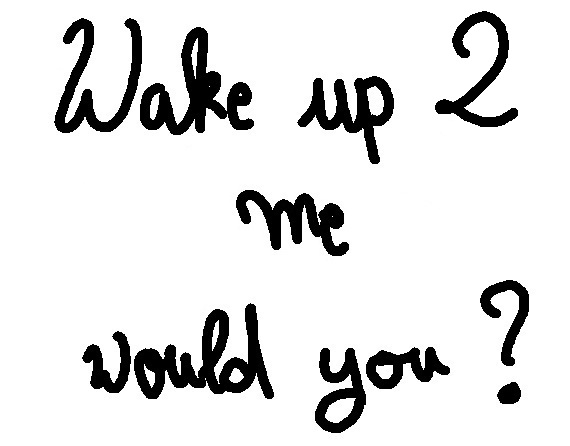 Wake up 2
me
would you ?